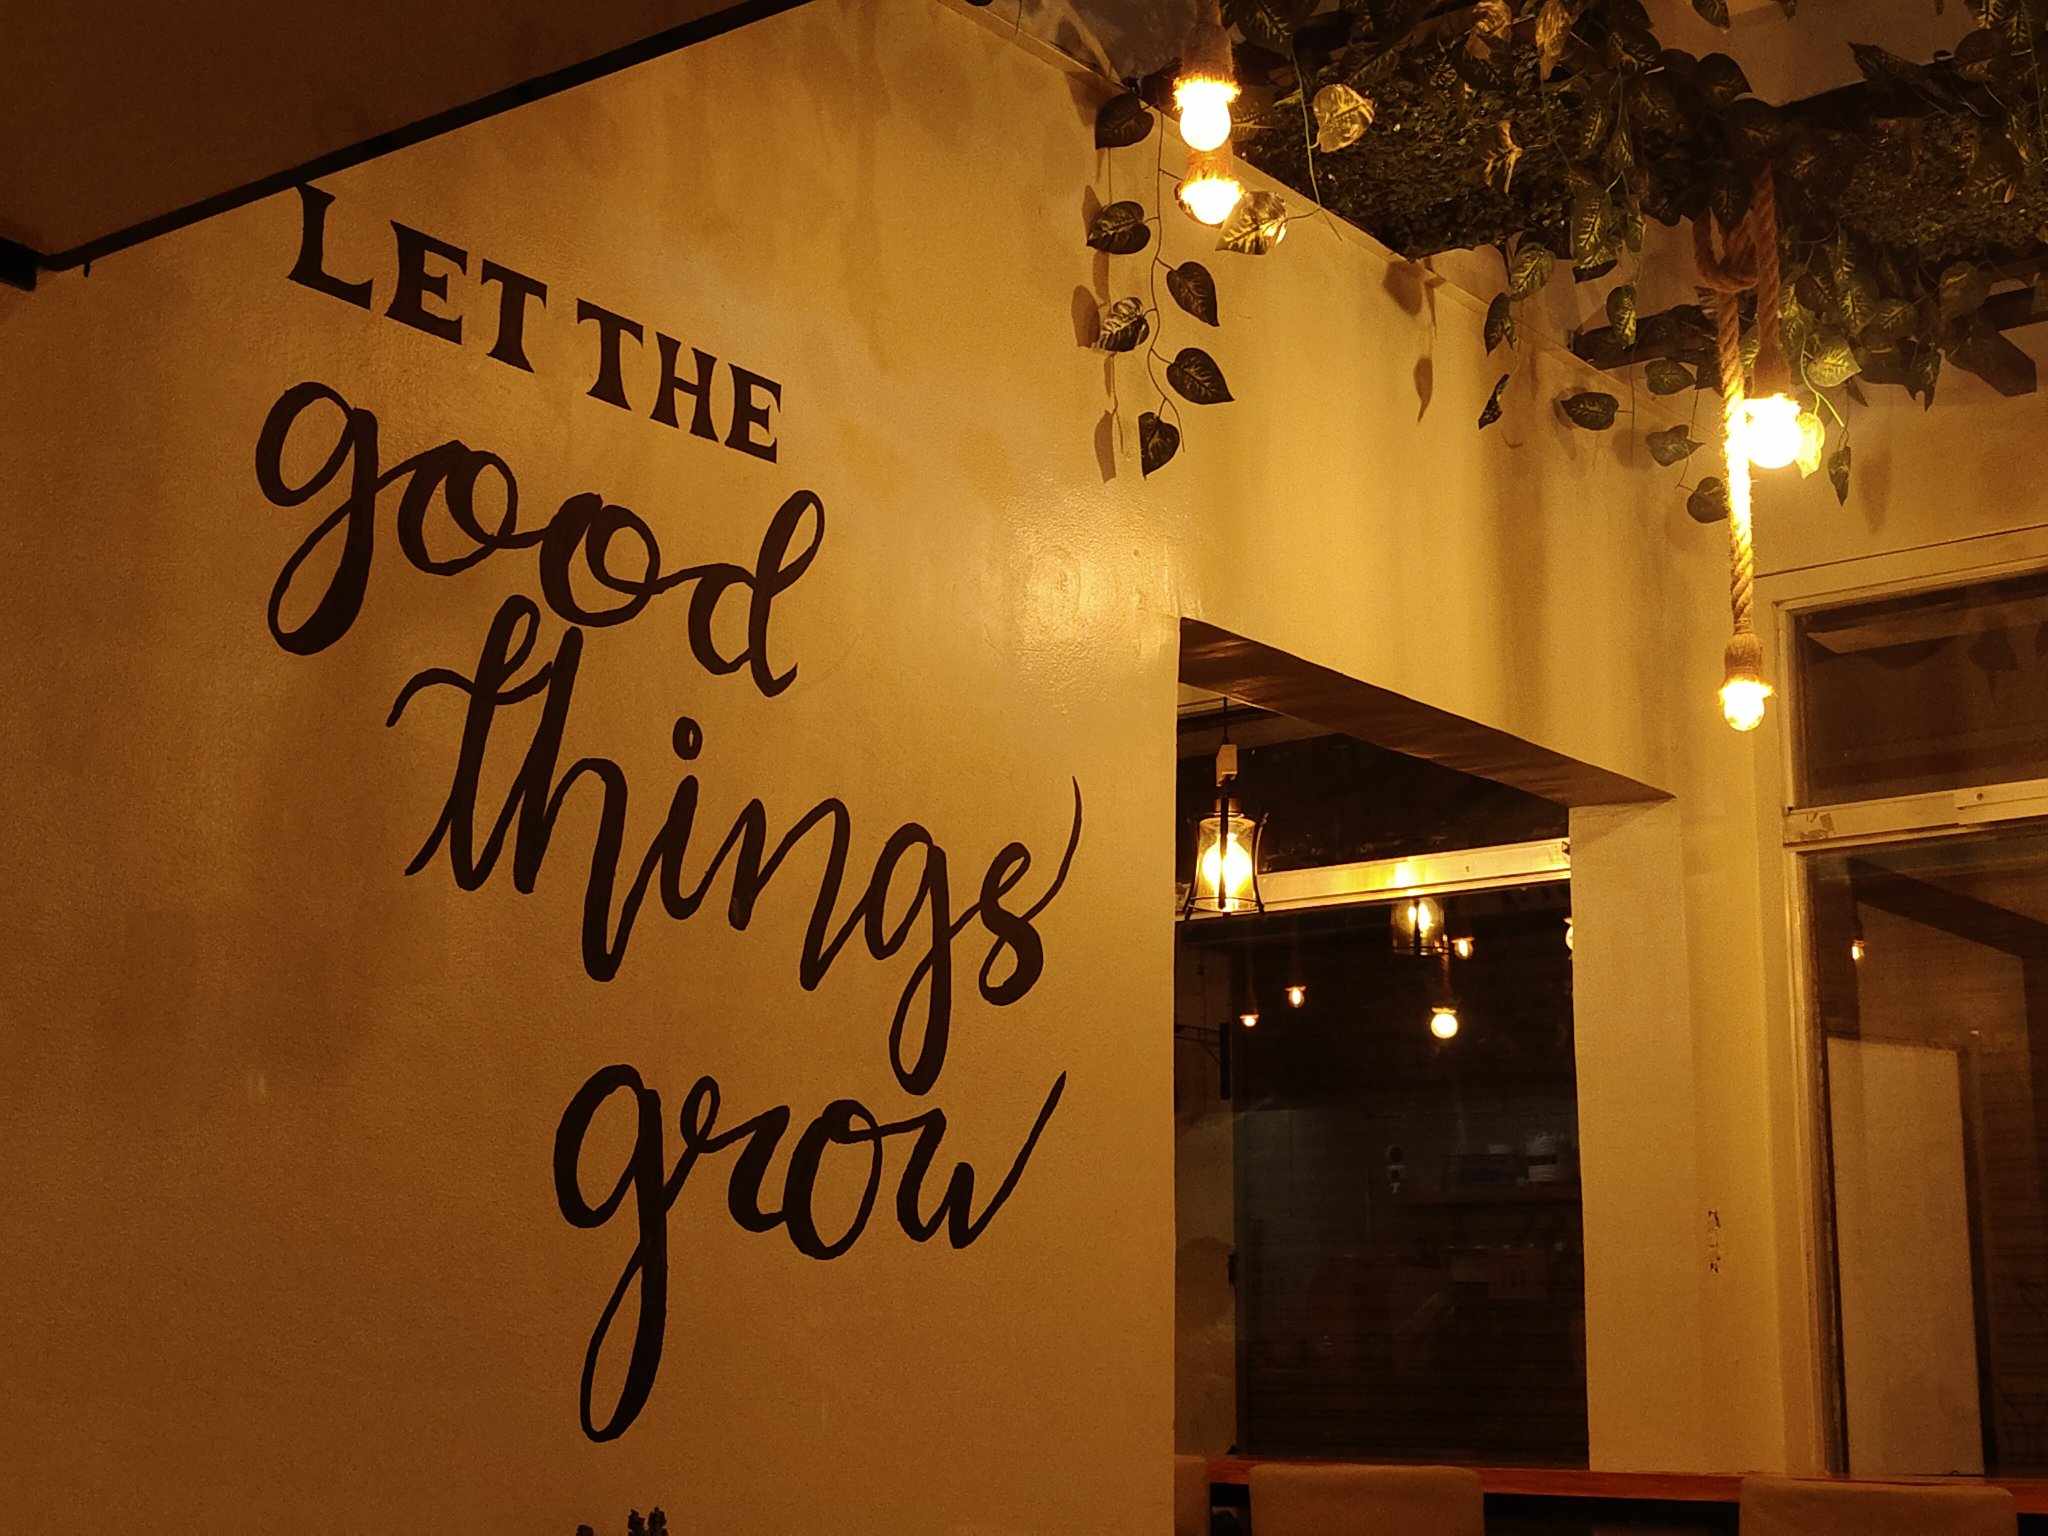 LET THE
good
things
grow